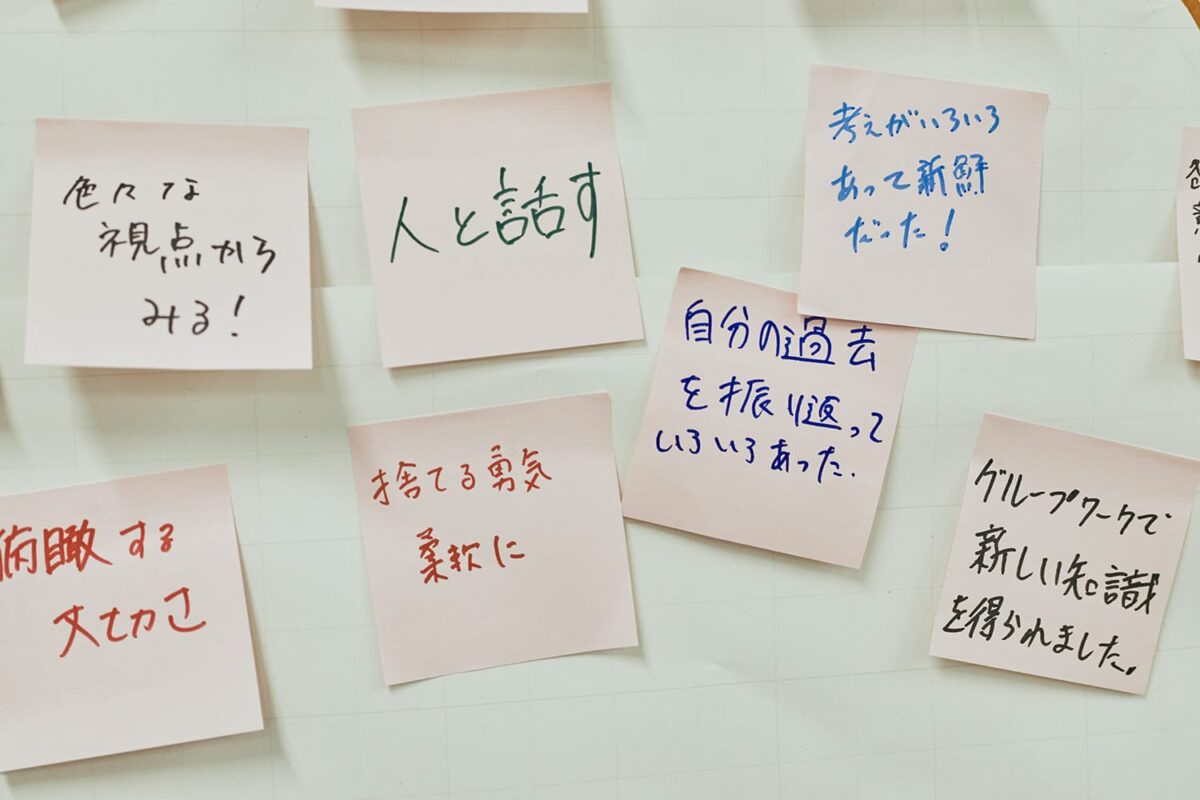 色々な
視点から
みる！
人と話す
考えがいろいろ
あって新鮮
だった！
自分の過去
を振り返って
いろいろあった.
俯瞰する
大切さ
捨てる勇気
柔軟に
グループワークで
新しい知識
を得られました。